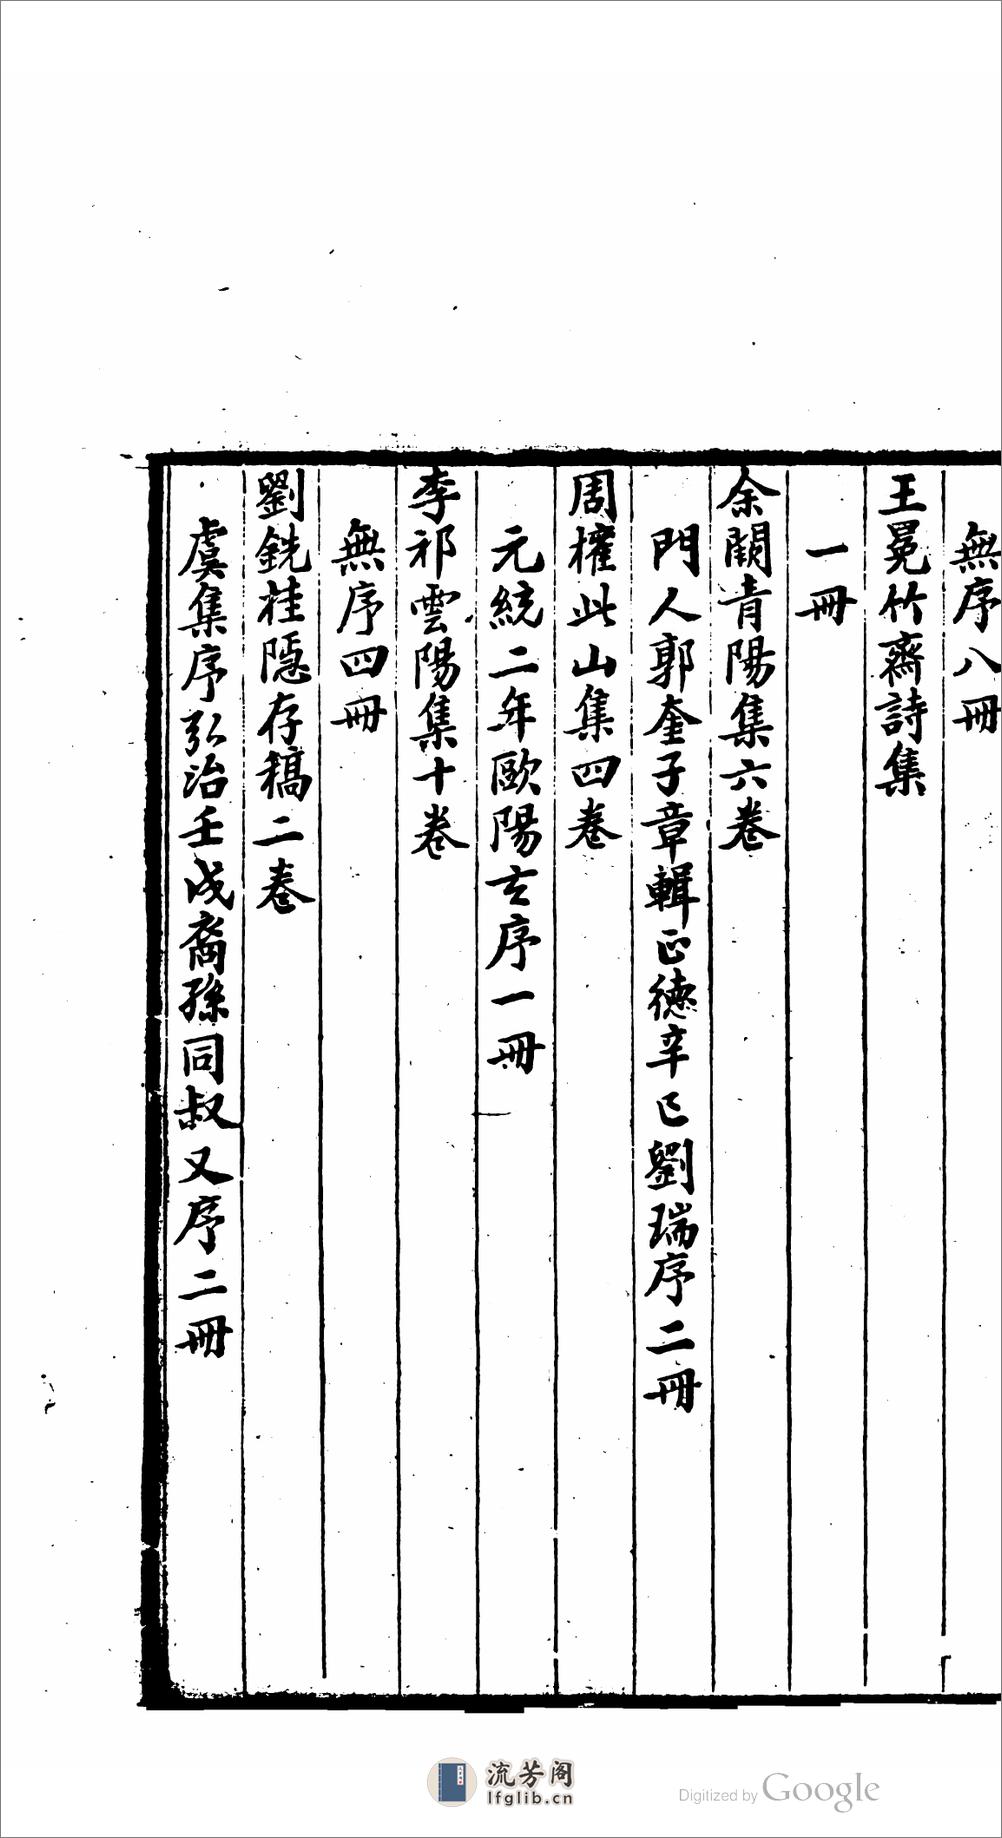 無序八冊
王冕竹齋詩集
一冊
余闕青陽集六卷
門人郭奎子章輯正德辛巳劉瑞序二冊
周權此山集四卷
元統二年歐陽玄序一冊
李祁雲陽集十卷
無序四冊
劉銑桂隱存稿二卷
虞集序弘治壬戌裔孫同叔又序二冊
流芳阁
lfglib.cn
Digitized by Google